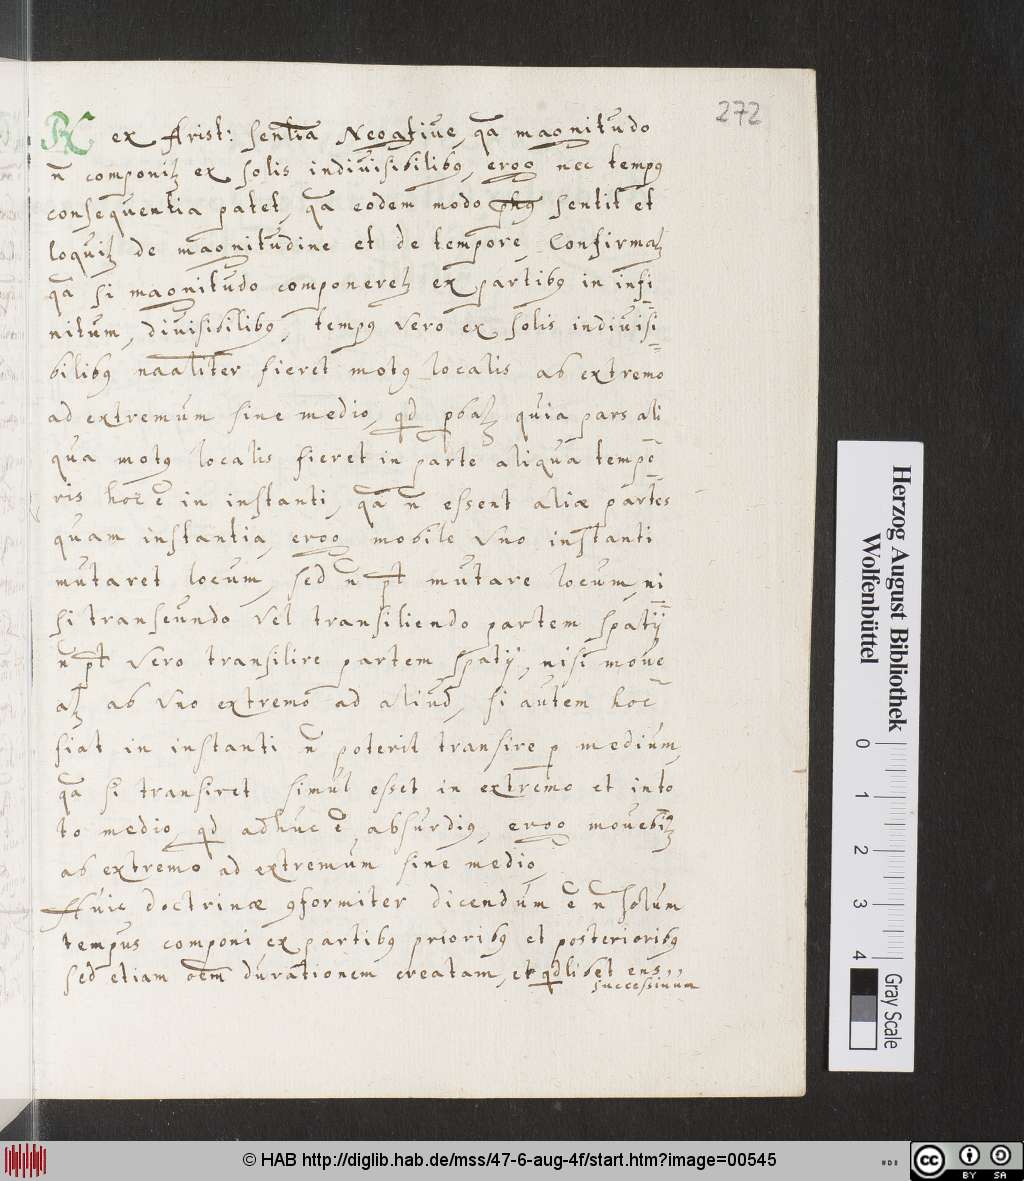 272
R ex Arist: sentīa Negatiue, qa magnitudo
n̄ componit᷑ ex solis indiuisibilibꝰ, ergo nec tempꝰ
consequentia patet, qa eodem modo phꝰ sentit et
loquit᷑ de magnitudine et de tempore, Confirmat᷑
qa si magnitudo componeret᷑ ex partibꝰ in infi=
nitum, diuisibilibꝰ, tempꝰ vero ex solis indiuisi=
bilibꝰ naaliter fieret motꝰ localis ab extremo
ad extremum sine medio, qd ꝓbat᷑ quia pars ali
qua motꝰ localis fieret in parte aliqua tempo=
ris hoc ē in instanti, qa n̄ essent aliæ partes
quam instantia, ergo mobile vno instanti
mutaret locum, sed n̄ pt mutare locum, ni=
si transeundo vel transiliendo partem spatij
n̄ pt vero transilire partem spatij, nisi moue=
at᷑ ab vno extremo ad aliud, si autem hoc
fiat in instanti n̄ poterit transire ꝑ medium,
qa si transiret simul esset in extremo et in to
to medio, qd adhuc ē absurdiꝰ, ergo mouebit᷑
ab extremo ad extremum sine medio,
Huic doctrinæ ꝯformiter dicendum ē n̄ solum
tempus componi ex partibꝰ prioribꝰ et posterioribꝰ
sed etiam oēm durationem creatam, et qdlibet ens
successiuum
Herzog August Bibliothek
Wolfenbüttel
0 1 2 3 4
Gray Scale
© HAB http://diglib.hab.de/mss/47-6-aug-4f/start.htm?image=00545
cc BY SA